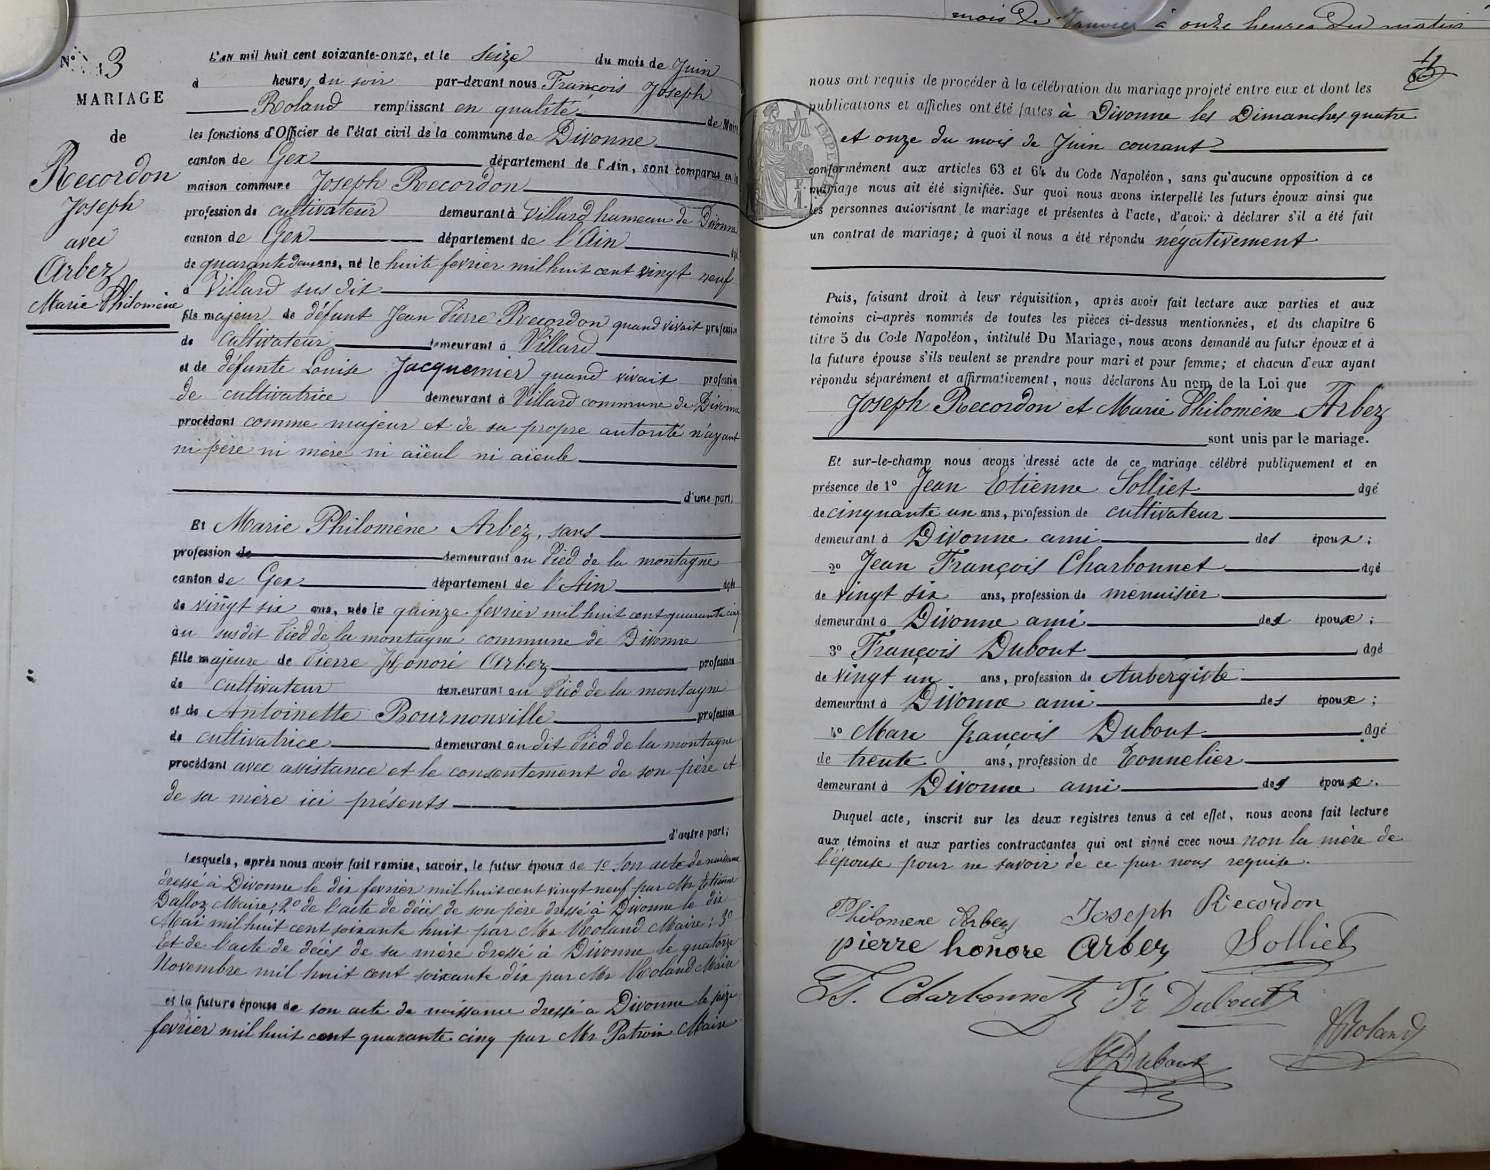 N° 13
MARIAGE
de
Recordon
Joseph
avec
Arbez
Marie Philomène
L'an mil huit cent soixante-onze, et le seize du mois de Juin
à heures du soir par-devant nous François Joseph
Roland remplissant en qualité de Maire
les fonctions d'Officier de l'état civil de la commune de Divonne
canton de Gex département de l'Ain, sont comparus en la
maison commune Joseph Recordon
profession de cultivateur demeurant à Villard hameau de Divonne
canton de Gex département de l'Ain
de quarante deux ans, né le huit fevrier mil huit cent vingt neuf
à Villard sus dit
fils majeur de défunt Jean Pierre Recordon quand vivait profession
de cultivateur demeurant à Villard
et de défunte Louise Jacquemier quand vivait profession
de cultivatrice demeurant à Villard commune de Divonne
procédant comme majeur et de sa propre autorité n'ayant
ni père ni mère ni aïeul ni aïeule
d'une part;
Et Marie Philomène Arbez, sans
profession de demeurant au Pied de la montagne
canton de Gex département de l'Ain âgée
de vingt six ans, née le quinze fevrier mil huit cent quarante cinq
au susdit Pied de la montagne commune de Divonne
fille majeure de Pierre Honoré Arbez profession
de cultivateur demeurant au Pied de la montagne
et de Antoinette Bournonville profession
de cultivatrice demeurant au dit Pied de la montagne
procédant avec assistance et le consentement de son père et
de sa mère ici présents
d'autre part;
Lesquels, après nous avoir fait remise, savoir, le futur époux de 1° Son acte de naissance
dressé à Divonne le dix fevrier mil huit cent vingt neuf par Mr Etienne
Dalloz Maire; 2° de l'acte de décès de son père dressé à Divonne le dix
Mai mil huit cent soixante huit par Mr Roland Maire; 3°
Et de l'acte de décès de sa mère dressé à Divonne le quatorze
Novembre mil huit cent soixante dix par Mr Roland Maire
et la future épouse de son acte de naissance dressé à Divonne le seize
fevrier mil huit cent quarante cinq par Mr Patroin Maire
mois de Janvier à onze heures du matin
nous ont requis de procéder à la célébration du mariage projeté entre eux et dont les
publications et affiches ont été faites à Divonne les Dimanches quatre
et onze du mois de Juin courant
conformément aux articles 63 et 64 du Code Napoléon, sans qu'aucune opposition à ce
mariage nous ait été signifiée. Sur quoi nous avons interpellé les futurs époux ainsi que
les personnes autorisant le mariage et présentes à l'acte, d'avoir à déclarer s'il a été fait
un contrat de mariage; à quoi il nous a été répondu négativement
Puis, faisant droit à leur réquisition, après avoir fait lecture aux parties et aux
témoins ci-après nommés de toutes les pièces ci-dessus mentionnées, et du chapitre 6
titre 5 du Code Napoléon, intitulé Du Mariage, nous avons demandé au futur époux et à
la future épouse s'ils veulent se prendre pour mari et pour femme; et chacun d'eux ayant
répondu séparément et affirmativement, nous déclarons Au nom de la Loi que
Joseph Recordon et Marie Philomène Arbez
sont unis par le mariage.
Et sur-le-champ nous avons dressé acte de ce mariage célébré publiquement et en
présence de 1° Jean Etienne Solliet âgé
de cinquante un ans, profession de cultivateur
demeurant à Divonne ami des époux;
2° Jean François Charbonnet âgé
de vingt six ans, profession de menuisier
demeurant à Divonne ami des époux;
3° François Dubout âgé
de vingt un ans, profession de Aubergiste
demeurant à Divonne ami des époux;
4° Marc François Dubout âgé
de trente ans, profession de Tonnelier
demeurant à Divonne ami des époux.
Duquel acte, inscrit sur les deux registres tenus à cet effet, nous avons fait lecture
aux témoins et aux parties contractantes qui ont signé avec nous non la mère de
l'épouse pour ne savoir de ce par nous requise.
Philomene Arbez Joseph Recordon
pierre honore Arbez Solliet
Charbonnet Fr Dubout
M Dubout Roland